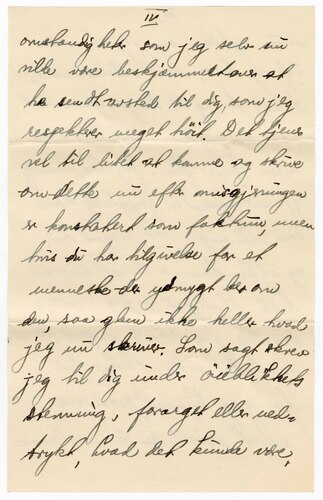 IV
omstændigheter som jeg selv nu
vilde være beskjæmmet over at
ha sendt avsted til dig, som jeg
respekterer meget høit. Det tjener
vel til litet at komme og skrive
om dette nu efter omisgjerningen
er konstatert som faktum, men
hvis du har tilgivelse for et
menneske der ydmygt ber om
den, saa glem ikke heller hvad
jeg nu skriver. Som sagt skrev
jeg til dig under öieblikkets
stemning, forarget eller ned-
trykt, hvad det kunde være,